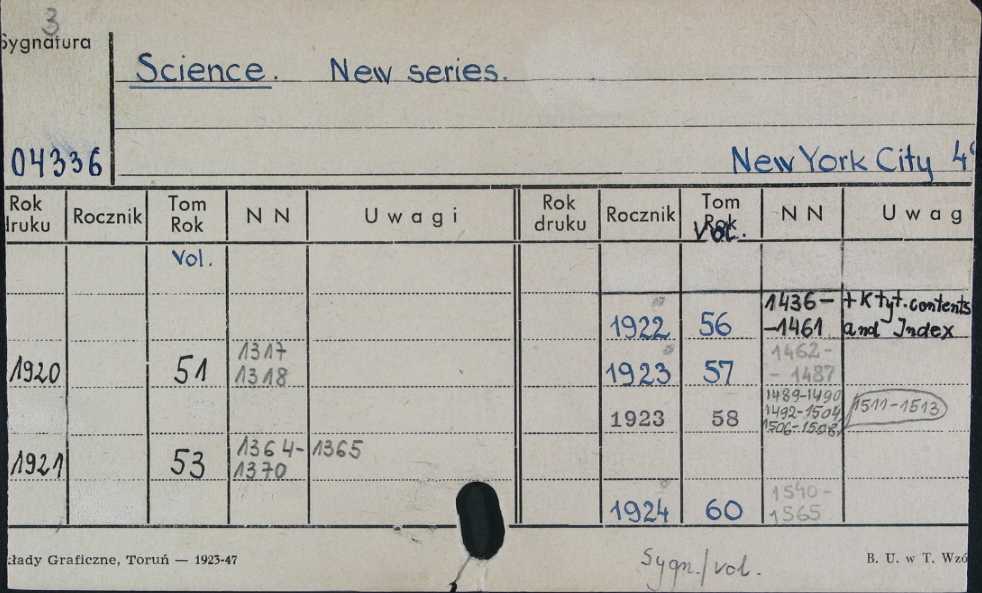 3
Sygnatura
Science. New series.
04336
New York City 4°
Rok druku Rocznik Tom Rok N N Uwagi Rok druku Rocznik Tom Rok N N Uwag
Vol. Vol.
1922 56 1436- -1461 + K tyt. contents and Index
1920 51 1317 1318 1923 57 1462- - 1487
1923 58 1489-1490 1492-1504 1506-1508 1511-1513
1921 53 1364- 1370 1365
1924 60 1540- 1565
kłady Graficzne, Toruń — 1923-47
Sygn./vol.
B. U. w T. Wzó